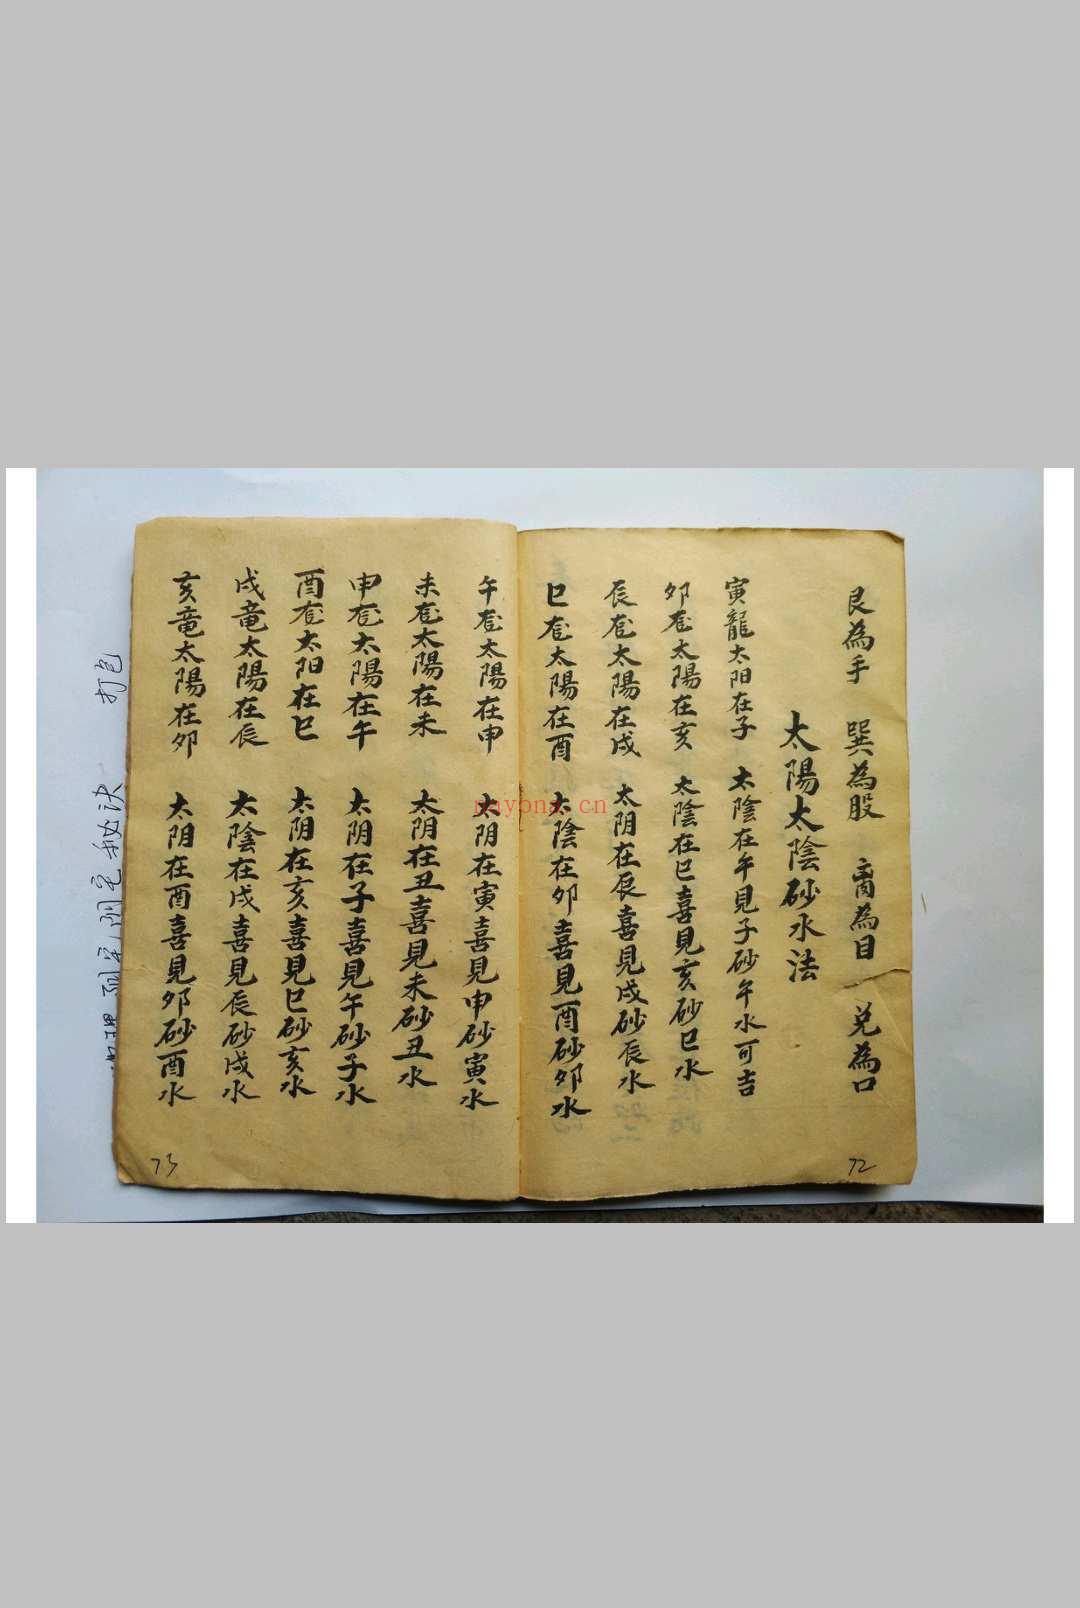 艮為手　巽為股　离為目　兑為口
太陽太陰砂水法
寅龍太阳在子　太陰在午見子砂午水可吉
夘竜太陽在亥　太陰在巳喜見亥砂巳水
辰竜太陽在戌　太阴在辰喜見戌砂辰水
巳竜太陽在酉　太陰在夘喜見酉砂夘水
72
午竜太陽在申　太阴在寅喜見申砂寅水
未竜太陽在未　太阴在丑喜見未砂丑水
申竜太陽在午　太阴在子喜見午砂子水
酉竜太阳在巳　太阴在亥喜見巳砂亥水
戌竜太陽在辰　太陰在戌喜見辰砂戌水
亥竜太陽在夘　太阴在酉喜見夘砂酉水
73
阴宅秘诀　打包
nayona.cn